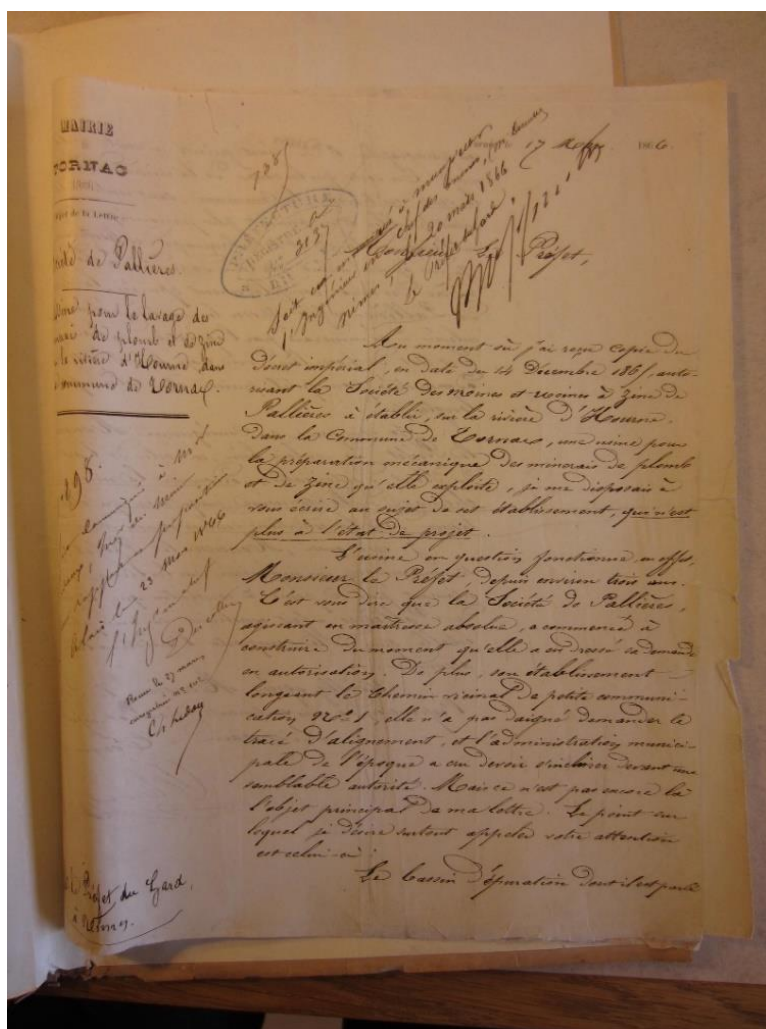 MAIRIE
TORNAC
Objet de la Lettre
Société de Pallières.
Usine pour le lavage des
minerai de plomb et de zinc
la rivière d'Hourne dans
commune de Tornac.
17 1866.
PRÉFECTURE
3137
Soit communiqué à
l'Ingénieur en Chef des Mines,
Nimes, 20 mars 1866
Le Préfet du Gard,
Monsieur Le Préfet,
Au moment où j'ai reçu copie du
décret impérial, en date du 14 Décembre 1865, auto-
risant la Société des mines et usines à zinc de
Pallières à établir, sur la rivière d'Hourne,
dans la Commune de Tornac, une usine pour
la préparation mécanique des minerais de plomb
et de zinc qu'elle exploite, je me disposais à
vous écrire au sujet de cet établissement, qui n'est
plus à l'état de projet.
L'usine en question fonctionne en effet,
Monsieur le Préfet, depuis environ trois ans.
C'est vous dire que la Société de Pallières,
agissant en maîtresse absolue, a commencé à
construire du moment qu'elle a eu dressé sa demande
en autorisation. De plus, son établissement
longeant le chemin vicinal de petite communi-
cation No 1, elle n'a pas daigné demander le
tracé d'alignement, et l'administration munici-
pale de l'époque a cru devoir s'incliner devant une
semblable autorité. Mais ce n'est pas encore là
l'objet principal de ma lettre. Le point sur
lequel je désire surtout appeler votre attention
est celui-ci :
Le bassin d'épuration dont il est parlé
communiqué à
des mines
rapport et proposition
Alais le 23 Mars 1866
l'Ing en chef
Reçu le 27 mars,
enregistré
Préfet du Gard,
à Nimes.